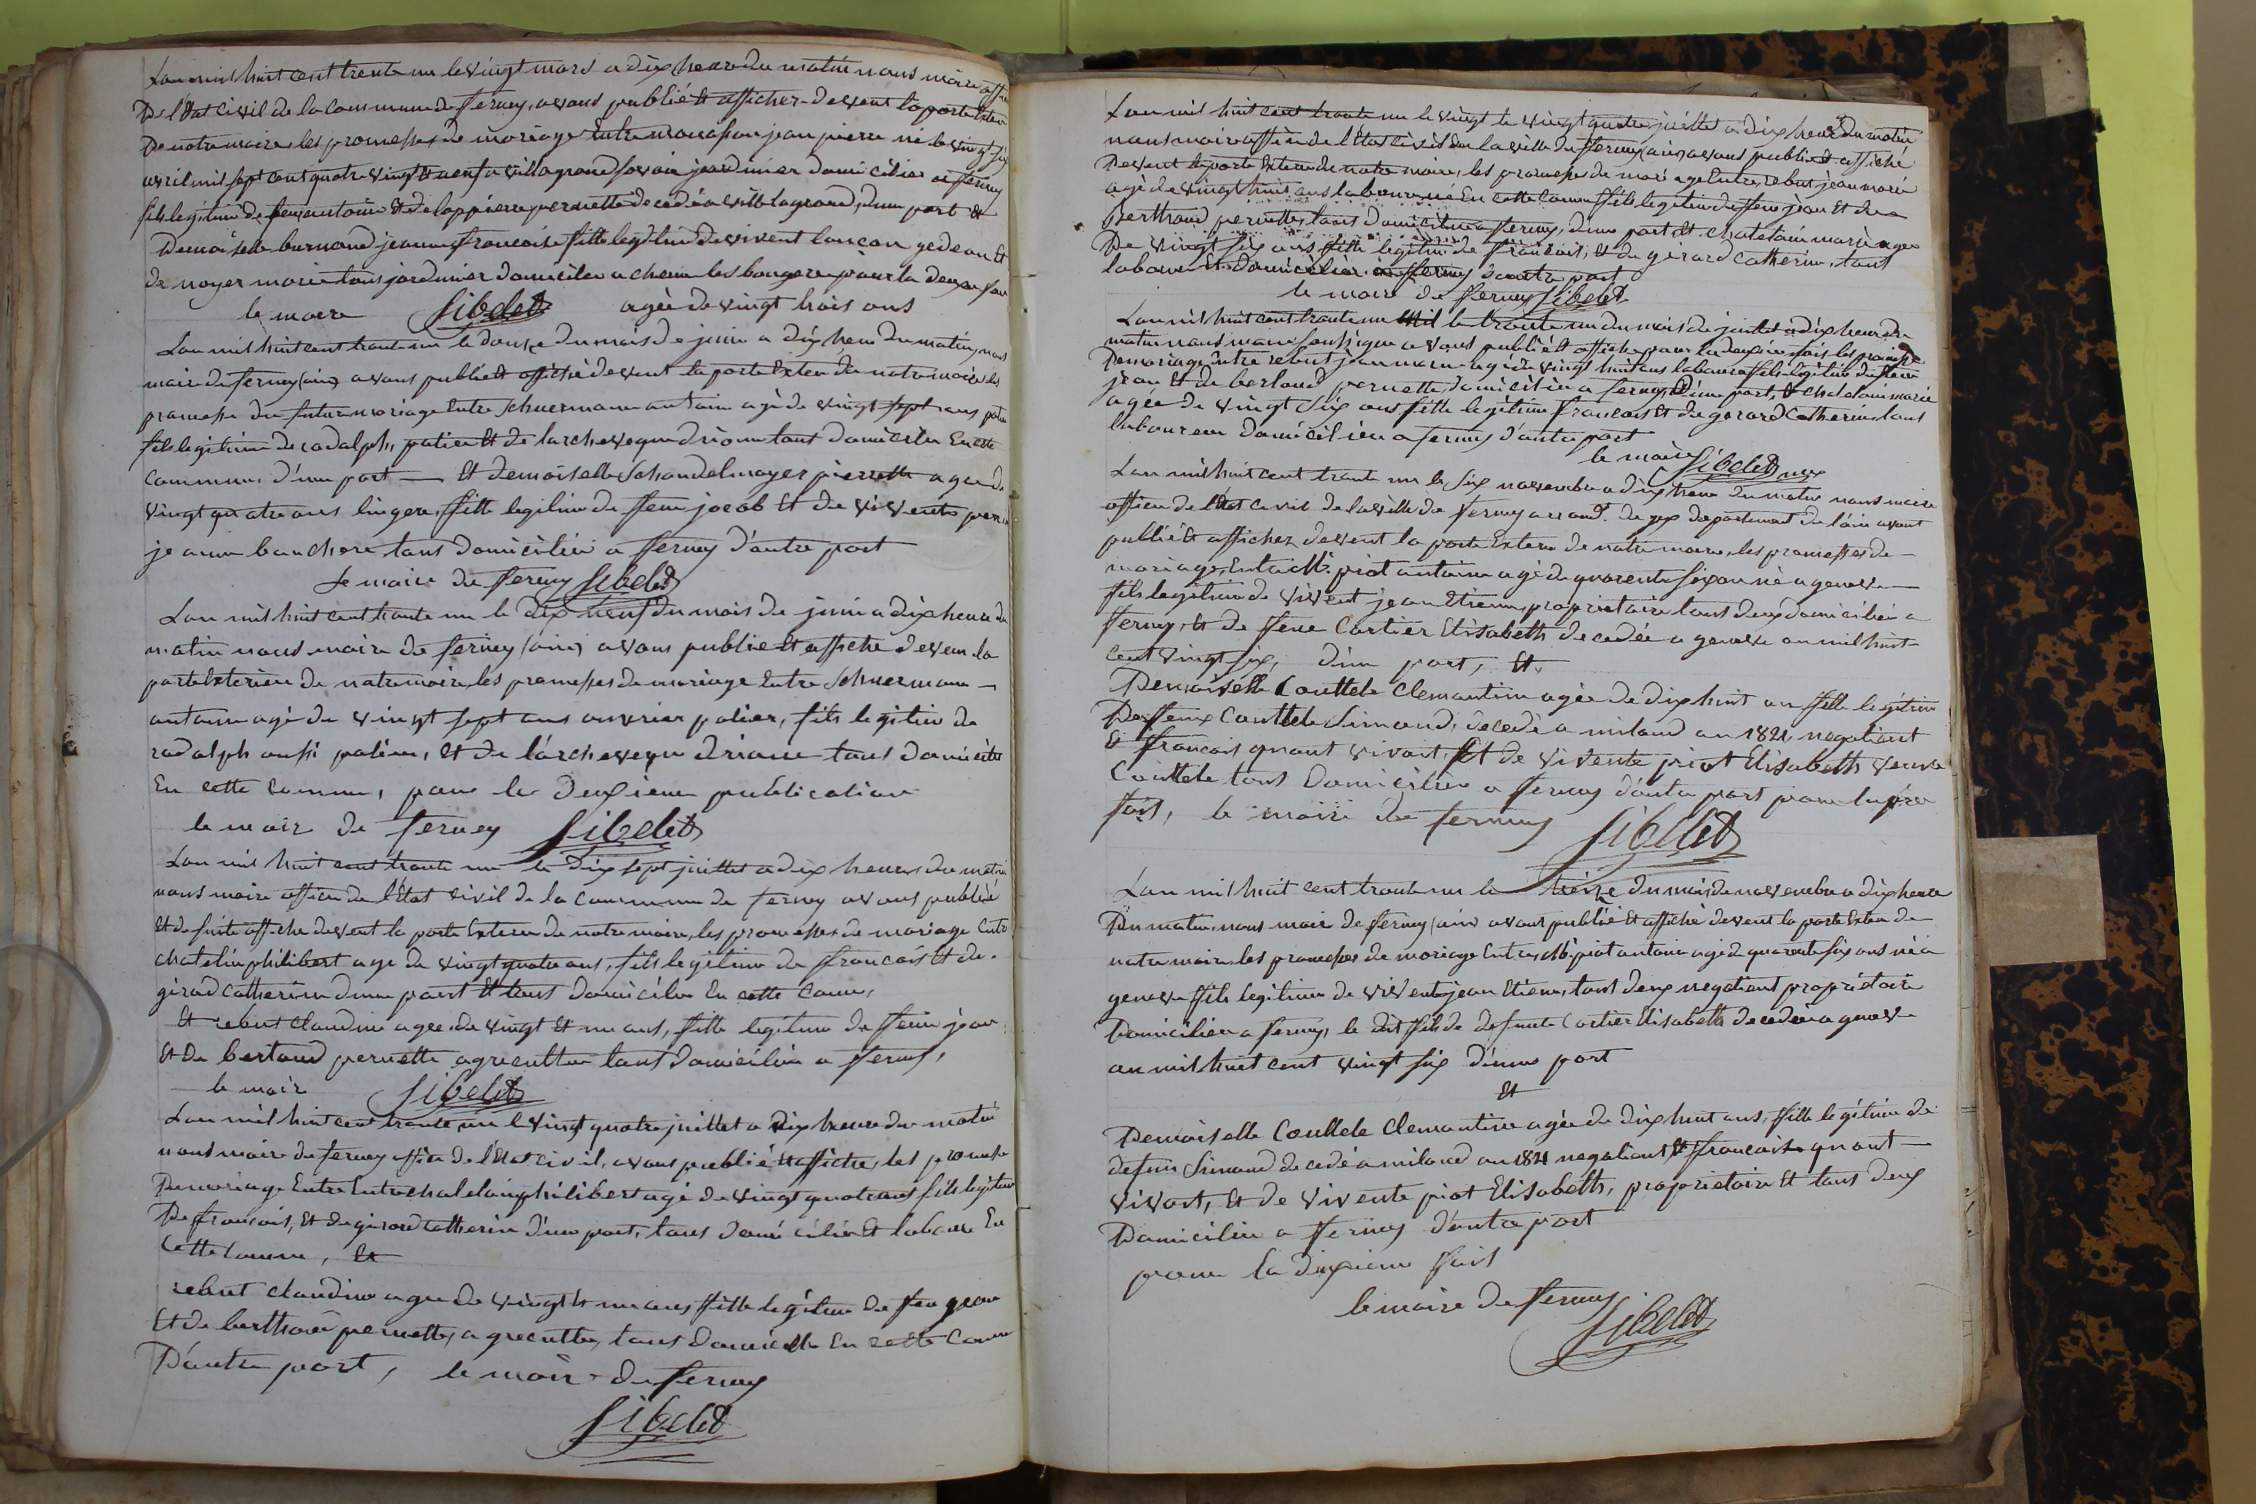 Lan mil huit cent trente un le vingt mars a dix heure du matin nous maire offi
De l'Etat Civil de la Commune de ferney, avons publié et afficher devent la porte Exter
De notre mairie les promesses de mariage Entre jean pierre né le vingt six
avril mil sept cent quatre vingt et neuf a villagrand savoie jardinier domicilier a ferney
fils legitime de feu antoine et de lappierre pernette decedé a villagrand, d'une part et
Demoiselle burnand jeanne francoise fille legitime de vivent gedeon Et
de noyer marie tous jardinier domicilier a pour la deux foi
le maire Sibelet agée de vingt trois ans
Lan mil huit cent trente un le douze du mois de juin a dix heure du matin nous
maire de ferney (ain) avons publié et affiché devent la porte Exter de notre mairie les
promesse du futur mariage Entre Schuermann antoine agé de vingt sept ans potier
fils legitime de radalph, potier Et de larcheveque driane tous domicilier En cette
Commune d'une part — Et demoiselle Schandelmayer pierrette agee de
vingt quatre ans lingere, fille legitime de feu jacob Et de vivente
jeanne banchere tous domicilié a ferney d'autre part
Le maire de ferney Sibelet
Lan mil huit cent trente un le dix neuf du mois de juin a dix heure du
matin nous maire de ferney (ain) avons publié Et affiché deven la
porte Exterieu de notre mairie les promesses de mariage Entre Schuermann —
antoine agé de vingt sept ans ouvrier potier, fils legitim de
radalph aussi potier, et de l'archeveque driane tous domicilié
En cette Commu, pour la Deuxieme publication
le maire de ferney Sibelet
Lan mil huit cent trente un le dix sept juillet a dix heures du matin
nous maire officie de l'Etat civil de la Commune de ferney avons publié
Et de suite affiche devent la porte Extern de notre mairie, les promesses de mariage Entr
chatelin philibert age de vingt quatre ans, fils legitime de francois Et de
girod catherine d'une part Et tous domicilié En cette Comm,
Et rebut claudine agée de vingt Et un ans, fille legitime de feu jean
Et de bertoud pernette agriculteur tous domicilié a ferney,
le mair Sibelet
Lan mil huit cent trente un le vingt quatre juillet a dix heure du matin
nous maire de ferney officie de l'Etat civil, avons publié Et affiche, les promesse
De mariage Entre Entre chatelain philibert agé de vingt quatre ans fils legitime
De francois, Et de girod catherin d'une part, tous domicilié Et laboure En
Cette comm, Et
rebut claudine agee de vingt Et un ans fille legitime de feu jean
Et de berthoud pernette, agriculteu, tous domicilié En cette Comm
D'autre part, le mair de ferney
Sibelet
Lan mil huit cent trente un le vingt le vingt quatre juillet a dix heure du matin
nous maire officie de l'Etat civil de la ville de ferney (ain) avons publié et affiché
Devent la porte Extern de notre mairie, les promesses de mariage Entre rebut jean marie
agé de vingt huit ans laboureur né En cette Comm fils legitim de feu jean Et de
berthoud pernette, tous domicilié a ferney, d'une part Et chatelain marie agee
De vingt six ans fille legitim de francois, Et de girard Catherine, tous
laboure Et domicilier a ferney d'autre part
le maire de ferney Sibelet
Lan mil huit cent trente un le trente un du mois de juillet a dix heure du
matin nous maire soussigne avons publié et affiche pour la deuxieme fois les promesse
De mariage Entre rebut jean marie agé de vingt huit ans laboure fils legitime de feu
jean Et de bertoud pernette, domicilié a ferney, d'une part, Et chatelain marie
agee de vingt six ans fille legitime francois Et de gerard Catherine tous
laboureur domicilié a ferney d'autre part
le maire Sibelet
Lan mil huit cent trente un le six novembre a dix heure du matin nous maire
officie de l'Etat civil de la ville de ferney arrond. de gex departement de l'ain avont
publié Et affichez devent la porte Extern de notre maire, les promesses de —
mariage, Entre Mr. piot antoine agé de quarente six an né a geneve —
fils legitime de vivent jean Etienne, proprietaire tous deux domicilié a
ferney, Et de feue Cartier Elisabeth decedée a geneve an mil huit
cent vingt six, d'une part, Et
Demoiselle Couttele Clemantine agée de dix huit an fille legitim
De feu Couttele Simond, decedé a miland an 1821 negotiant
Et francois quant vivait, Et de vivente piot Elisabeth veuve
Couttele tous Domicilié a ferney d'autre part pour la pre
fois, le maire de ferney Sibelet
Lan mil huit cent trente un le treize du mois de novembre a dix heure
Du matin, nous mair de ferney (ain) avons publié Et affiché devent la porte Exter de
notre mairie les promesses de mariage Entre, Mr. piot antoine agé de quarente six ans né a
geneve fils legitime de vivent jean Etienne, tous deux negotient proprietaire
Domicilié a ferney, le dit fils de defunte Cartier Elisabeth decedée a geneve
an mil huit cent vingt six d'une part
Et
Demoiselle Couttele Clemantine agée de dix huit ans, fille legitime de
defunt Simond decedé a miland an 1821 negotiant Et francois quant
vivait, Et de vivente piot Elisabeth, proprietaire Et tous deux
Domicilié a ferney d'autre part
pour la dexieme fois
le maire de ferney
Sibelet